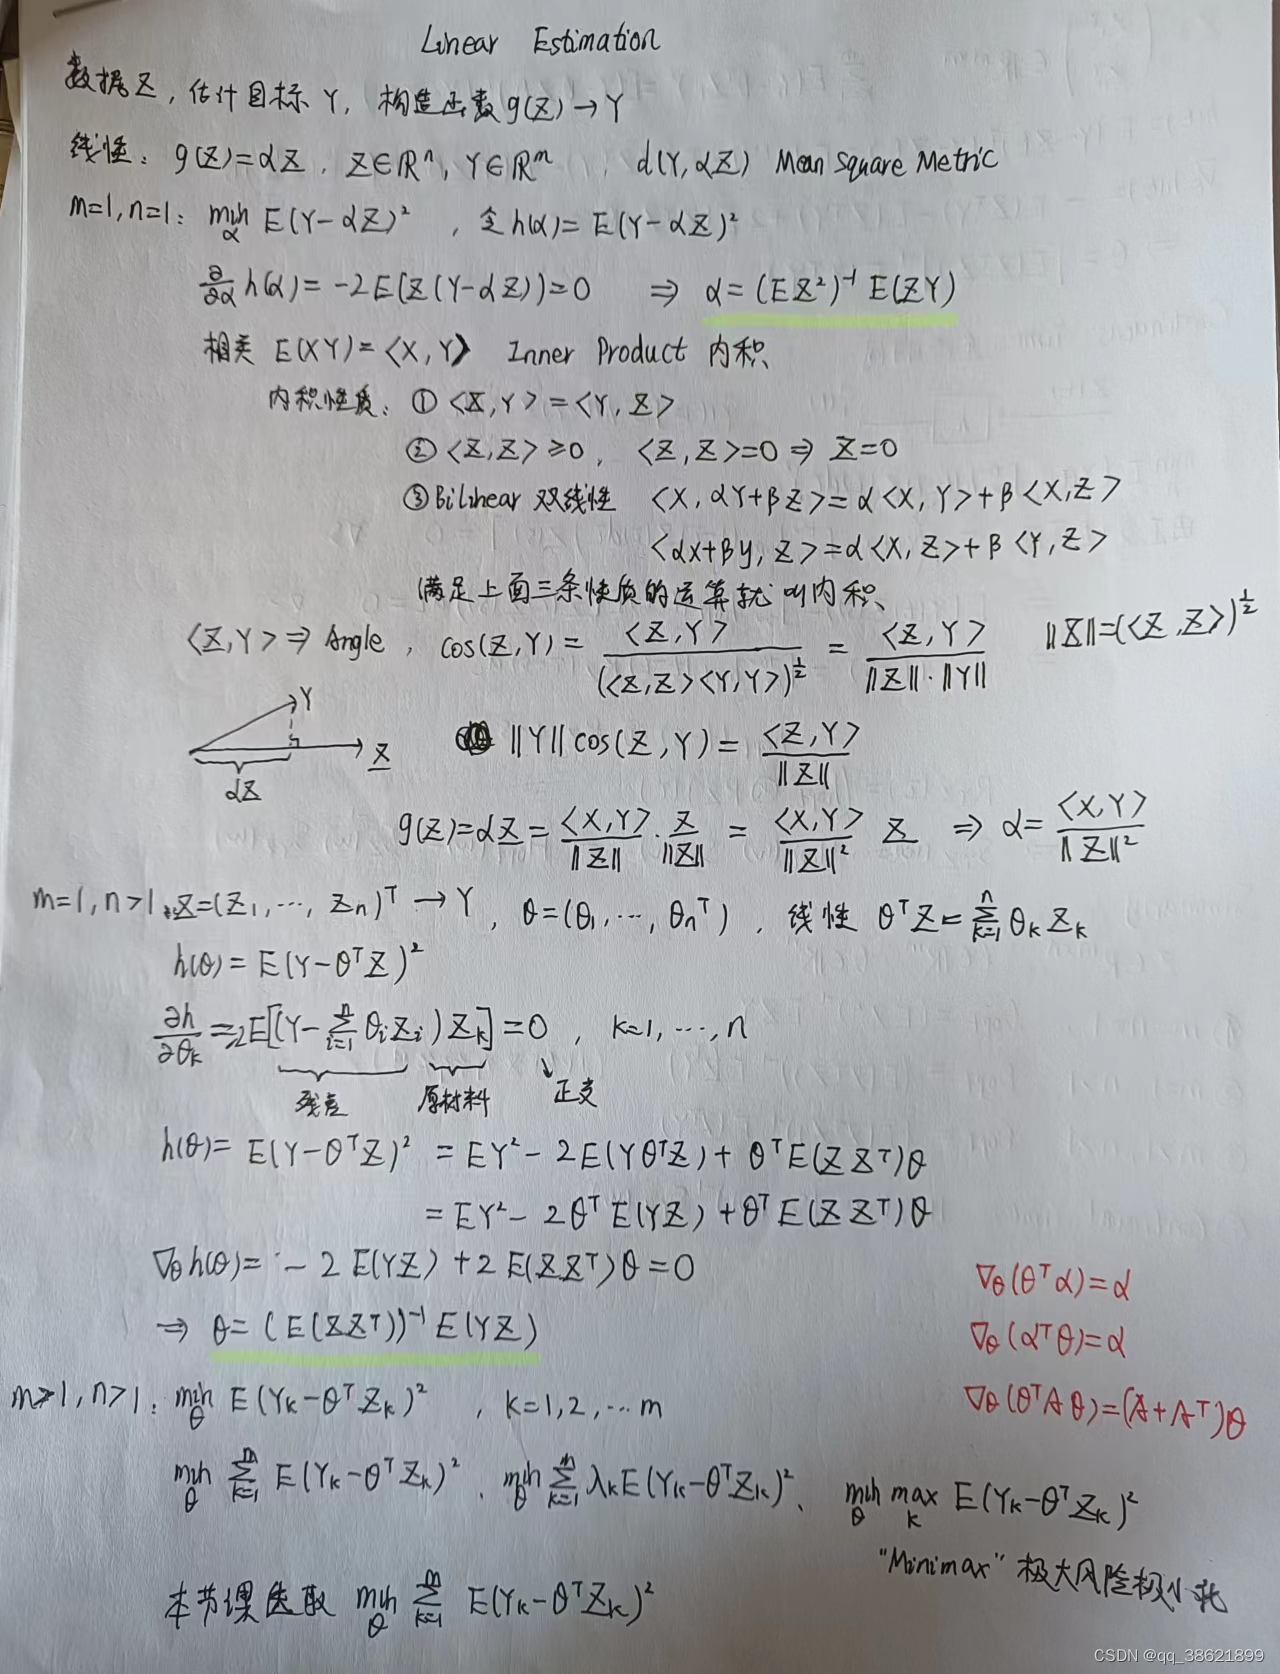 Linear Estimation
数据Z，估计目标Y，构造函数g(Z)→Y
线性：g(Z)=αZ，Z∈ℝⁿ，Y∈ℝᵐ d(Y,αZ) Mean Square Metric
m=1,n=1：min_α E(Y-αZ)²，令h(α)=E(Y-αZ)²
∂/∂α h(α)=-2E(Z(Y-αZ))=0 ⇒ α=(EZ²)⁻¹E(ZY)
相关 E(XY)=<X,Y> Inner Product 内积
内积性质：① <Z,Y>=<Y,Z>
② <Z,Z>≥0，<Z,Z>=0⇒Z=0
③ Bilinear 双线性 <X,αY+βZ>=α<X,Y>+β<X,Z>
<αX+βy,Z>=α<X,Z>+β<Y,Z>
满足上面三条性质的运算就叫内积
<Z,Y>⇒Angle，cos(Z,Y)=<Z,Y>/(<Z,Z><Y,Y>)^½=<Z,Y>/‖Z‖·‖Y‖ ‖Z‖=(<Z,Z>)^½
Y
Z
αZ
‖Y‖cos(Z,Y)=<Z,Y>/‖Z‖
g(Z)=αZ=<X,Y>/‖Z‖·Z/‖Z‖=<X,Y>/‖Z‖² Z ⇒ α=<X,Y>/‖Z‖²
m=1,n>1，Z=(Z₁,⋯,Zn)ᵀ→Y，θ=(θ₁,⋯,θnᵀ)，线性 θᵀZ=∑_{k=1}^{n}θkZk
h(θ)=E(Y-θᵀZ)²
∂h/∂θk=-2E[(Y-∑_{i=1}^{n}θiZi)Zk]=0，k=1,⋯,n
残差 原材料 正交
h(θ)=E(Y-θᵀZ)²=EY²-2E(YθᵀZ)+θᵀE(ZZᵀ)θ
=EY²-2θᵀE(YZ)+θᵀE(ZZᵀ)θ
∇θh(θ)=-2E(YZ)+2E(ZZᵀ)θ=0
⇒ θ=(E(ZZᵀ))⁻¹E(YZ)
∇θ(θᵀα)=α
∇θ(αᵀθ)=α
∇θ(θᵀAθ)=(A+Aᵀ)θ
m>1,n>1：min_θ E(Yk-θᵀZk)²，k=1,2,⋯m
min_θ ∑_{k=1}^{m}E(Yk-θᵀZk)²、min_θ ∑_{k=1}^{m}λkE(Yk-θᵀZk)²、min_θ max_k E(Yk-θᵀZk)²
"Minimax" 极大风险极小化
本节课选取 min_θ ∑_{k=1}^{m} E(Yk-θᵀZk)²
CSDN @qq_38621899